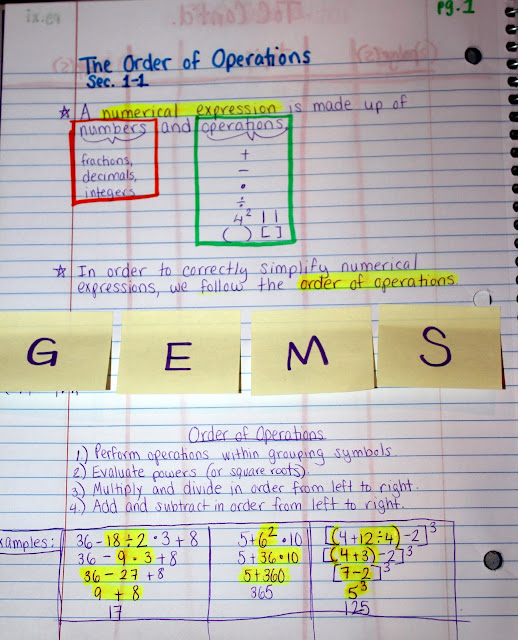 pg. 1
The Order of Operations
Sec. 1-1
☆ A numerical expression is made up of
numbers and operations.
fractions,
decimals,
integers
+
−
•
÷
4² | |
( ) [ ]
☆ In order to correctly simplify numerical
expressions, we follow the order of operations
G E M S
Order of Operations
1.) Perform operations within grouping symbols.
2.) Evaluate powers (or square roots).
3.) Multiply and divide in order from left to right.
4.) Add and subtract in order from left to right.
xamples:
36 − 18 ÷ 2 • 3 + 8
36 − 9 • 3 + 8
36 − 27 + 8
9 + 8
17
5 + 6² • 10
5 + 36 • 10
5 + 360
365
[(4 + 12 ÷ 4) − 2]³
[(4 + 3) − 2]³
[7 − 2]³
5³
125